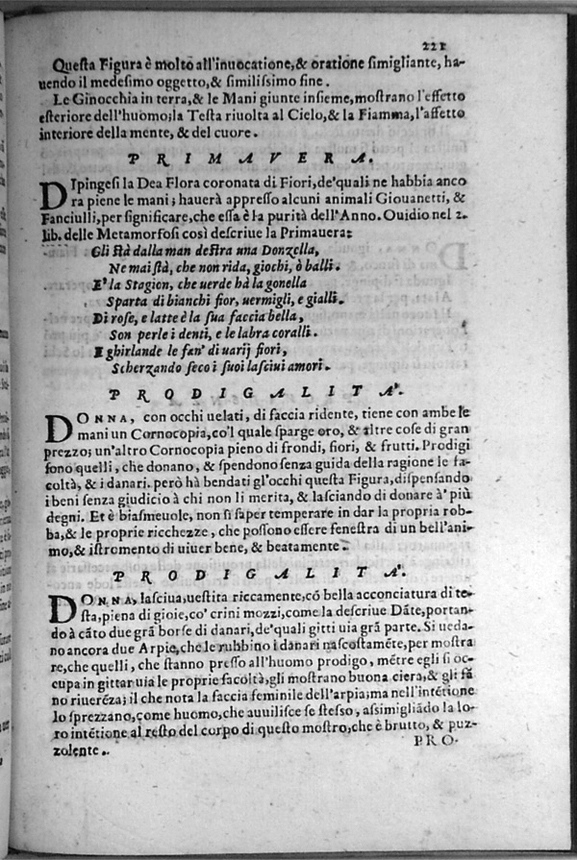 221
Questa Figura è molto all'inuocatione,& oratione simigliante, ha-
uendo il medesimo oggetto,& similissimo fine.
Le Ginocchia in terra,& le Mani giunte insieme,mostrano l'effetto
esteriore dell'huomo;la Testa riuolta al Cielo,& la Fiamma,l'affetto
interiore della mente, & del cuore.
PRIMAVERA.
DIpingesi la Dea Flora coronata di Fiori,de'quali ne habbia anco
ra piene le mani; hauerà appresso alcuni animali Giouanetti, &
Fanciulli,per significare,che essa è la purità dell'Anno. Ouidio nel 2.
lib. delle Metamorfosi così descriue la Primauera:
Gli stà dalla man destra una Donzella,
Ne mai stà, che non rida, giochi, ò balli.
E' la Stagion, che uerde hà la gonella
Sparta di bianchi fior, uermigli, e gialli.
Di rose, e latte è la sua faccia bella,
Son perle i denti, e le labra coralli.
E ghirlande le fan' di uarij fiori,
Scherzando seco i suoi lasciui amori.
PRODIGALITA'.
DONNA, con occhi uelati, di faccia ridente, tiene con ambe le
mani un Cornocopia,co'l quale sparge oro, & altre cose di gran
prezzo; un'altro Cornocopia pieno di frondi, fiori, & frutti. Prodigi
sono quelli, che donano, & spendono senza guida della ragione le fa-
coltà, & i danari. però hà bendati gl'occhi questa Figura,dispensando
i beni senza giudicio à chi non li merita, & lasciando di donare à' più
degni. Et è biasmeuole, non si saper temperare in dar la propria rob-
ba,& le proprie ricchezze, che possono essere fenestra di un bell'ani-
mo,& istromento di uiuer bene, & beatamente.
PRODIGALITA'.
DONNA, lasciua,uestita riccamente,cō bella acconciatura di te-
sta,piena di gioie,co' crini mozzi,come la descriue Dāte,portan-
do à cāto due grā borse di danari,de'quali gitti uia grā parte. Si ueda-
no ancora due Arpie,che le rubbino i danari nascostamēte,per mostra
re,che quelli, che stanno presso all'huomo prodigo, mētre egli si oc-
cupa in gittar uia le proprie facoltà,gli mostrano buona ciera,& gli fā
no riuerēza; il che nota la faccia feminile dell'arpia;ma nell'intētione
lo sprezzano,come huomo,che auuilisce se stesso, assimigliādo la lo-
ro intētione al resto del corpo di questo mostro,che è brutto, & puz-
zolente.
PRO-